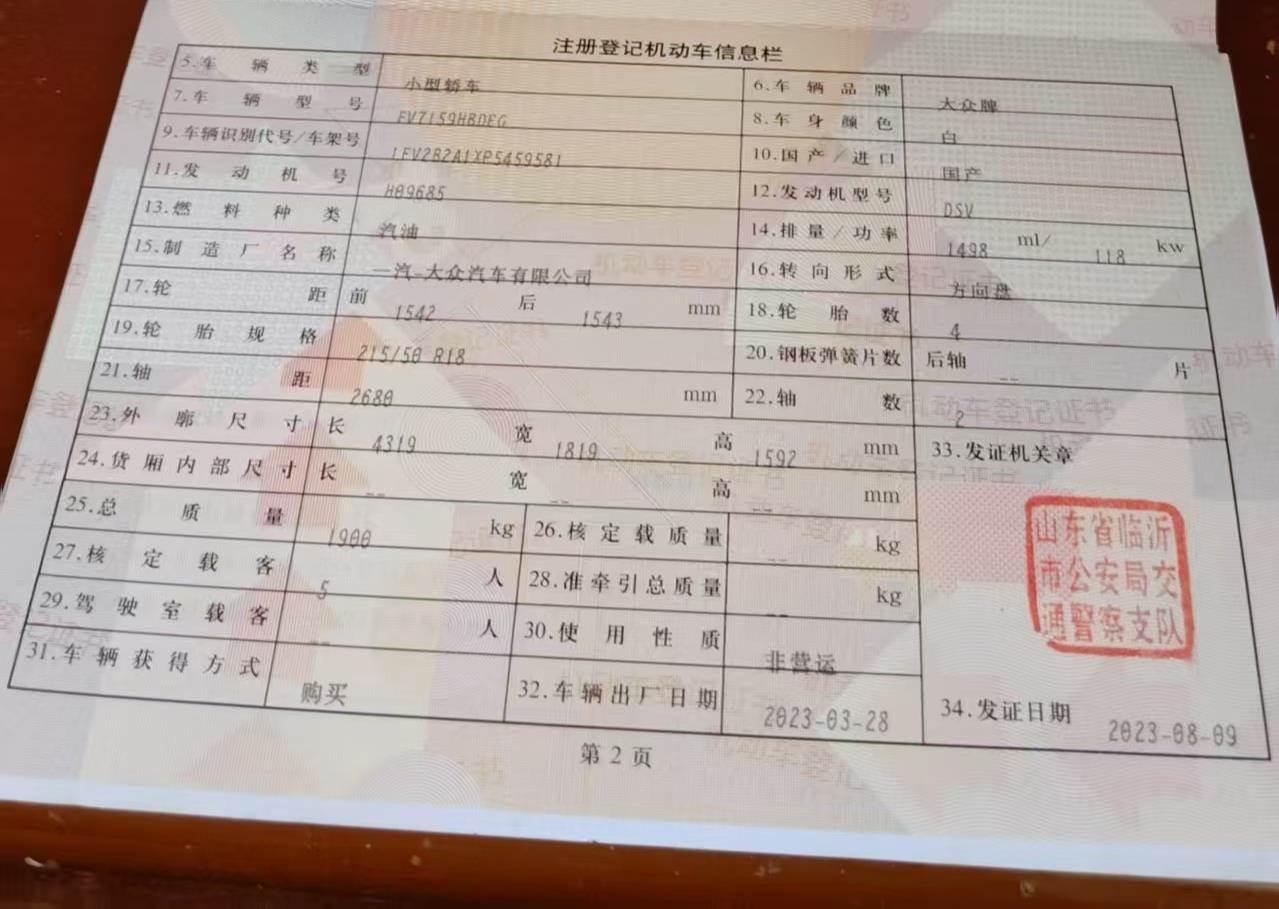 注册登记机动车信息栏
5.车辆类型 小型轿车 6.车辆品牌 大众牌
7.车辆型号 FV7159HBDEG 8.车身颜色 白
9.车辆识别代号/车架号 LFV2B2A1XP5459581 10.国产/进口 国产
11.发动机号 H09685 12.发动机型号 DSV
13.燃料种类 汽油 14.排量/功率 1498 ml/ 118 kw
15.制造厂名称 一汽-大众汽车有限公司 16.转向形式 方向盘
17.轮距 前 1542 后 1543 mm 18.轮胎数 4
19.轮胎规格 215/50 R18 20.钢板弹簧片数 后轴 -- 片
21.轴距 2680 mm 22.轴数 2
23.外廓尺寸 长 4319 宽 1819 高 1592 mm 33.发证机关章
24.货厢内部尺寸 长 -- 宽 -- 高 -- mm
25.总质量 1900 kg 26.核定载质量 -- kg
27.核定载客 5 人 28.准牵引总质量 -- kg
29.驾驶室载客 -- 人 30.使用性质 非营运
31.车辆获得方式 购买 32.车辆出厂日期 2023-03-28 34.发证日期 2023-08-09
山东省临沂
市公安局交
通警察支队
第2页